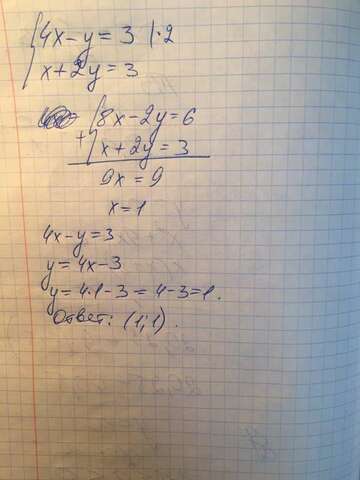 4x-y=3 |·2
x+2y=3
8x-2y=6
+ x+2y=3
9x=9
x=1
4x-y=3
y=4x-3
y=4·1-3=4-3=1.
Ответ: (1;1).